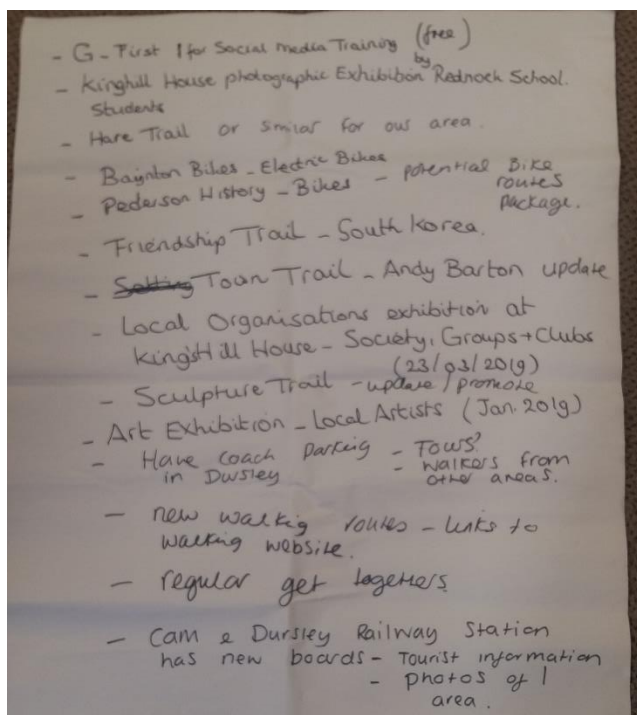 - G-First 1 for Social media Training (free)
- Kinghill House photographic Exhibition by Rednock School.
Students
- Hare Trail or similar for our area.
- Baynton Bikes - Electric Bikes
- Pederson History - Bikes - potential Bike
routes
package.
- Friendship Trail - South Korea.
- Town Trail - Andy Barton update
- Local Organisations exhibition at
King's Hill House - Society, Groups + Clubs
(23/03/2019)
- Sculpture Trail - update / promote
- Art Exhibition - Local Artists (Jan. 2019)
- Have coach parking - Tours?
in Dursley - walkers from
other areas.
- new walkig routes - links to
walking website.
- regular get togethers
- Cam & Dursley Railway Station
has new boards - Tourist information
- photos of
area.